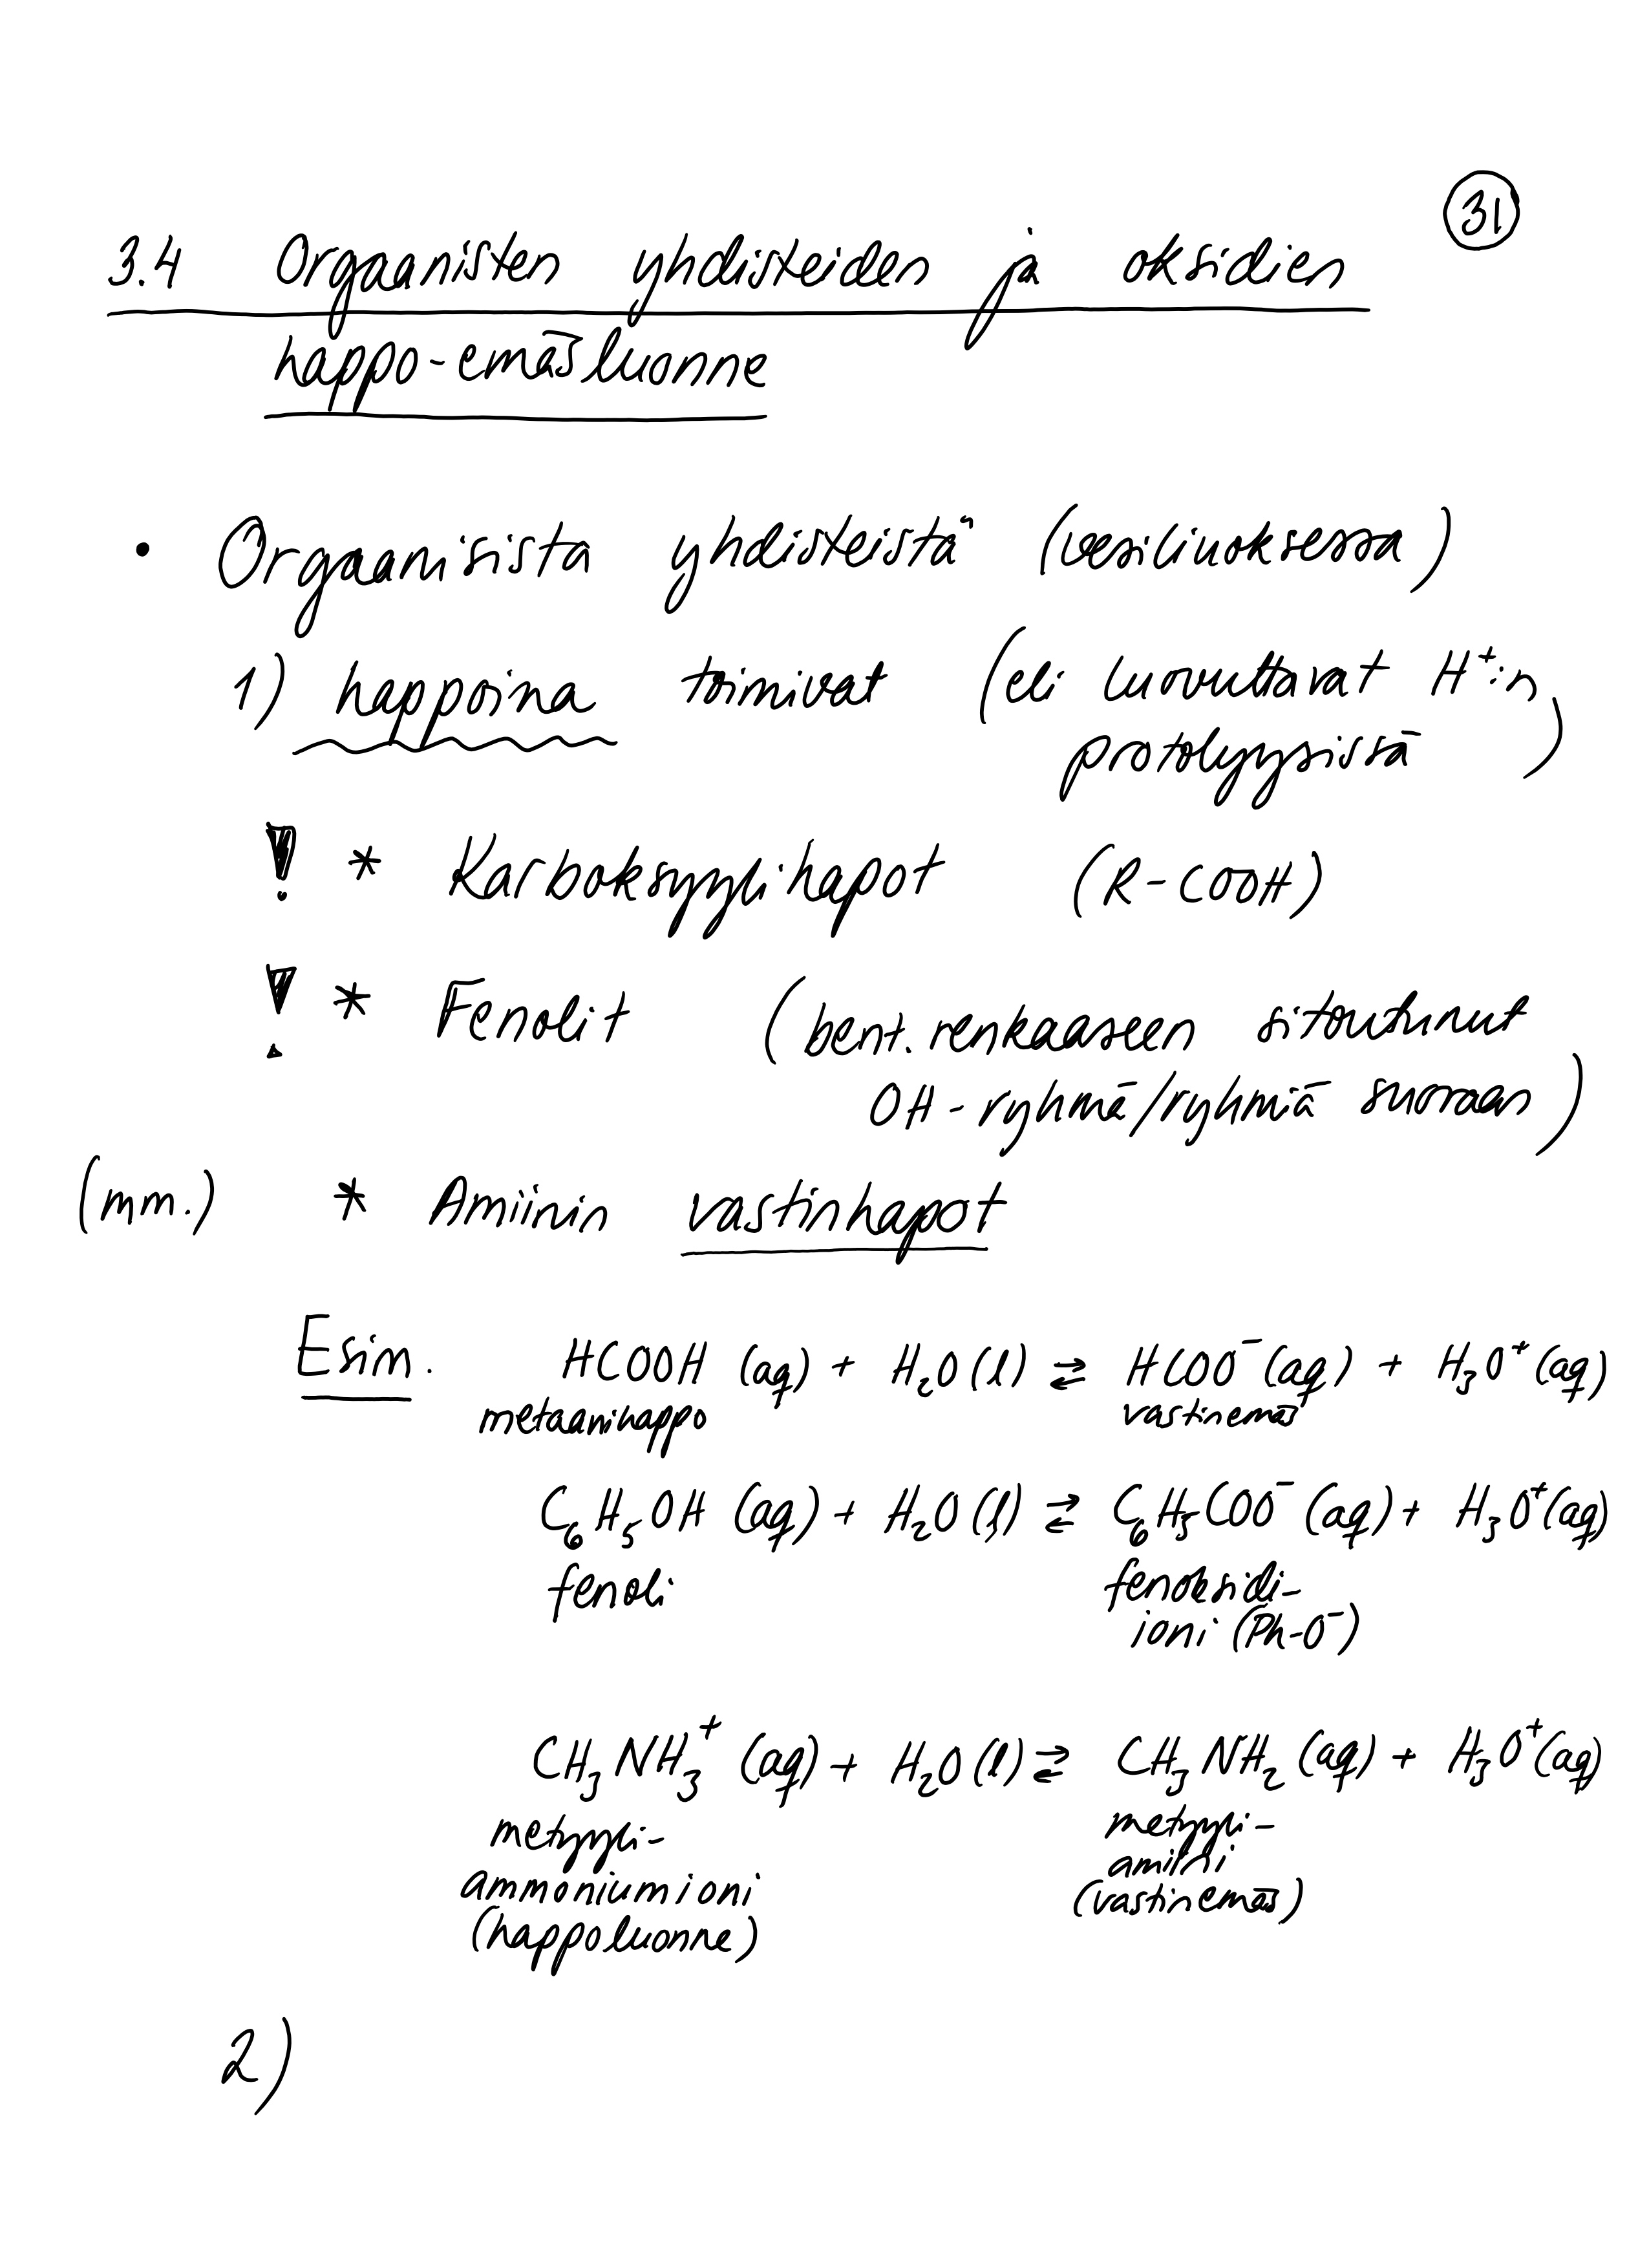 31
3.4 Orgaanisten yhdisteiden ja oksidien
happo-emäsluonne
• Orgaanisista yhdisteistä (vesiliuoksessa)
1) happoina toimivat (eli luovuttavat H⁺:n
protolyysissä)
! * Karboksyylihapot (R-COOH)
! * Fenolit (bent. renkaaseen sitoutunut
OH-ryhmä/ryhmiä suoraan)
(mm.) * Amiinin vastinhapot
Esim. HCOOH (aq) + H₂O (l) ⇄ HCOO⁻ (aq) + H₃O⁺ (aq)
metaanihappo vastinemäs
C₆H₅OH (aq) + H₂O (l) ⇄ C₆H₅COO⁻ (aq) + H₃O⁺ (aq)
fenoli fenoksidi-
ioni (Ph-O⁻)
CH₃NH₃⁺ (aq) + H₂O (l) ⇄ CH₃NH₂ (aq) + H₃O⁺ (aq)
metyyli- metyyli-
ammoniumioni amiini
(happoluonne) (vastinemäs)
2)